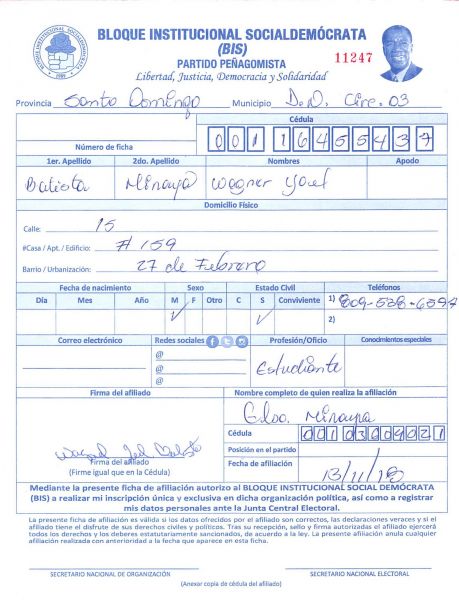 BLOQUE INSTITUCIONAL SOCIALDEMÓCRATA
(BIS)
PARTIDO PEÑAGOMISTA
11247
Libertad, Justicia, Democracia y Solidaridad
Provincia Santo Domingo Municipio D.N. Circ. 03
Cédula
Número de ficha
1er. Apellido 2do. Apellido Nombres Apodo
Batista Minaya Wagner
Domicilio Físico
Calle: 15
#Casa / Apt. / Edificio: # 159
Barrio / Urbanización: 27 de Febrero
Fecha de nacimiento Sexo Estado Civil Teléfonos
Día Mes Año M F Otro C S Conviviente 1) 809-538-6597
2)
Correo electrónico Redes sociales Profesión/Oficio Conocimientos especiales
@
@
@
Estudiante
Firma del afiliado Nombre completo de quien realiza la afiliación
Minaya
Cédula
Posición en el partido
Firma del afiliado
(Firme igual que en la Cédula)
Fecha de afiliación 13/11/18
Mediante la presente ficha de afiliación autorizo al BLOQUE INSTITUCIONAL SOCIAL DEMÓCRATA
(BIS) a realizar mi inscripción única y exclusiva en dicha organización política, así como a registrar
mis datos personales ante la Junta Central Electoral.
La presente ficha de afiliación es válida si los datos ofrecidos por el afiliado son correctos, las declaraciones veraces y si el
afiliado tiene el disfrute de sus derechos civiles y políticos. Tras su recepción, sello y firma autorizadas el afiliado ejercerá
todos los derechos y los deberes estatutariamente sancionados, de acuerdo a la ley. La presente afiliación anula cualquier
afiliación realizada con anterioridad a la fecha que aparece en esta ficha.
SECRETARIO NACIONAL DE ORGANIZACIÓN SECRETARIO NACIONAL ELECTORAL
(Anexar copia de cédula del afiliado)